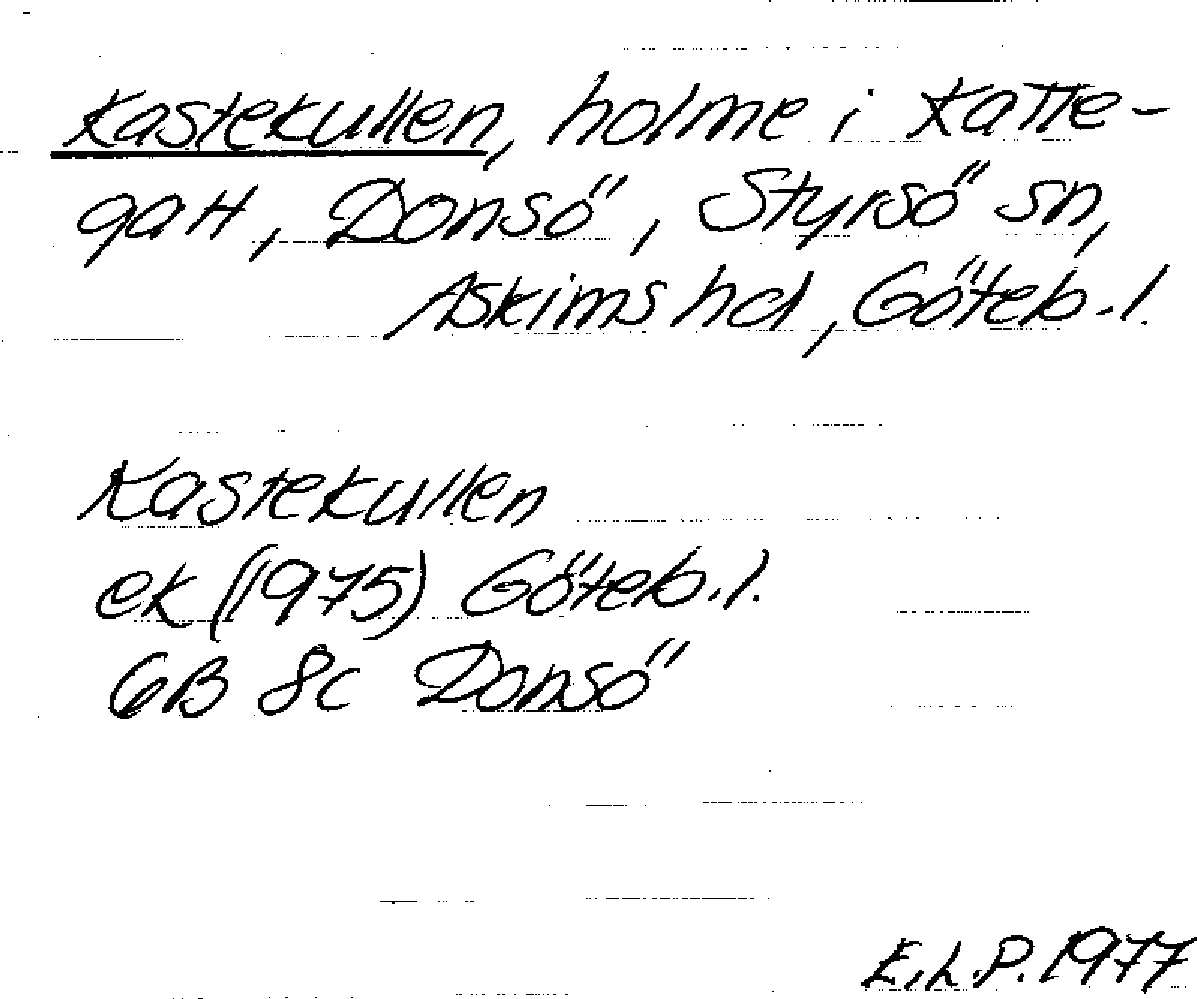 Kastekullen, holme i Katte-
gatt, Donsö, Styrsö sn,
Askims hd, Göteb.l.
Kastekullen
ek (1975) Göteb.l.
6B 8c Donsö
E.L.P. 1977